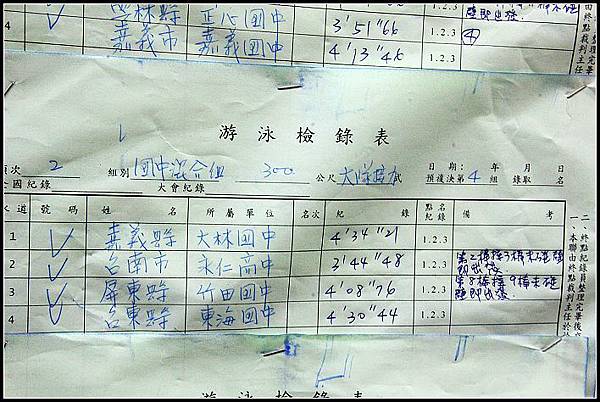 林縣 正心國中 3'51"66 1.2.3
嘉義市 嘉義國中 4'13"46 1.2.3 ④
由終點裁判主任
游泳檢錄表
項次 2 組別 國中混合組 300 公尺 大隊接力 日期： 年 月 日
預複決第 4 組 錄取 名
全國紀錄 大會紀錄
水道 號碼 姓名 所屬單位 名次 紀錄 點名紀錄 備考
1 嘉義縣 大林國中 4'34"21 1.2.3
2 台南市 永仁高中 3'44"48 1.2.3 第2棒接3棒未碰壁即出發
3 屏東縣 竹田國中 4'08"76 1.2.3 第8棒接9棒未碰壁即出發
4 台東縣 東海國中 4'30"44 1.2.3
二、終點紀錄員整理完畢後
一、本聯由終點裁判主任於
游泳檢錄表